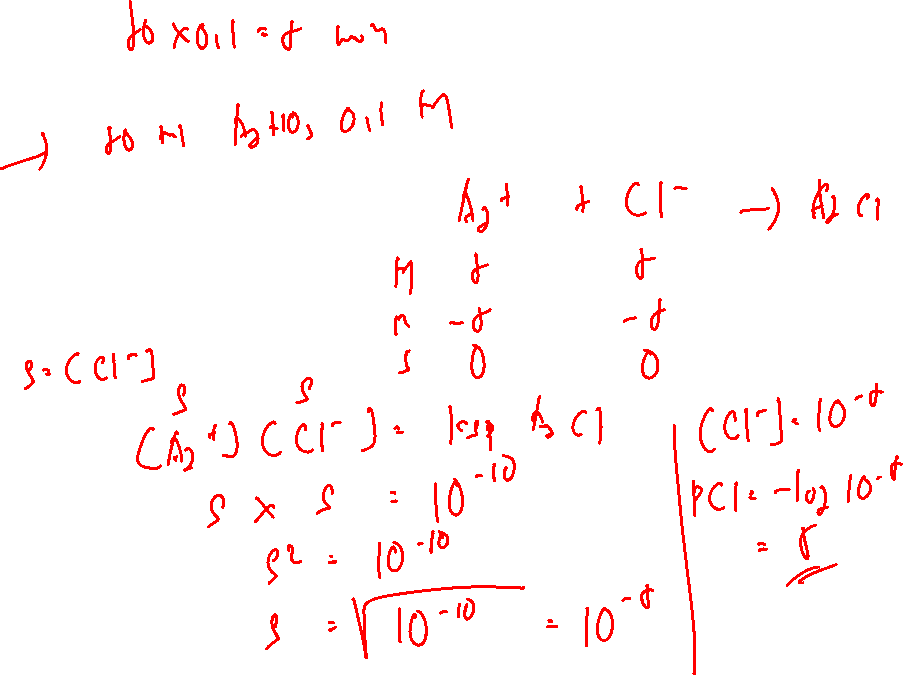 50 x 0,1 = 5 mmol
→ 50 ml AgNO3 0,1 M
Ag+ + Cl- → AgCl
M 5 5
R -5 -5
S 0 0
s = [Cl-]
s s
[Ag+] [Cl-] = Ksp AgCl
s x s = 10^-10
s² = 10^-10
s = √10^-10 = 10^-5
[Cl-] = 10^-5
pCl = -log 10^-5
= 5